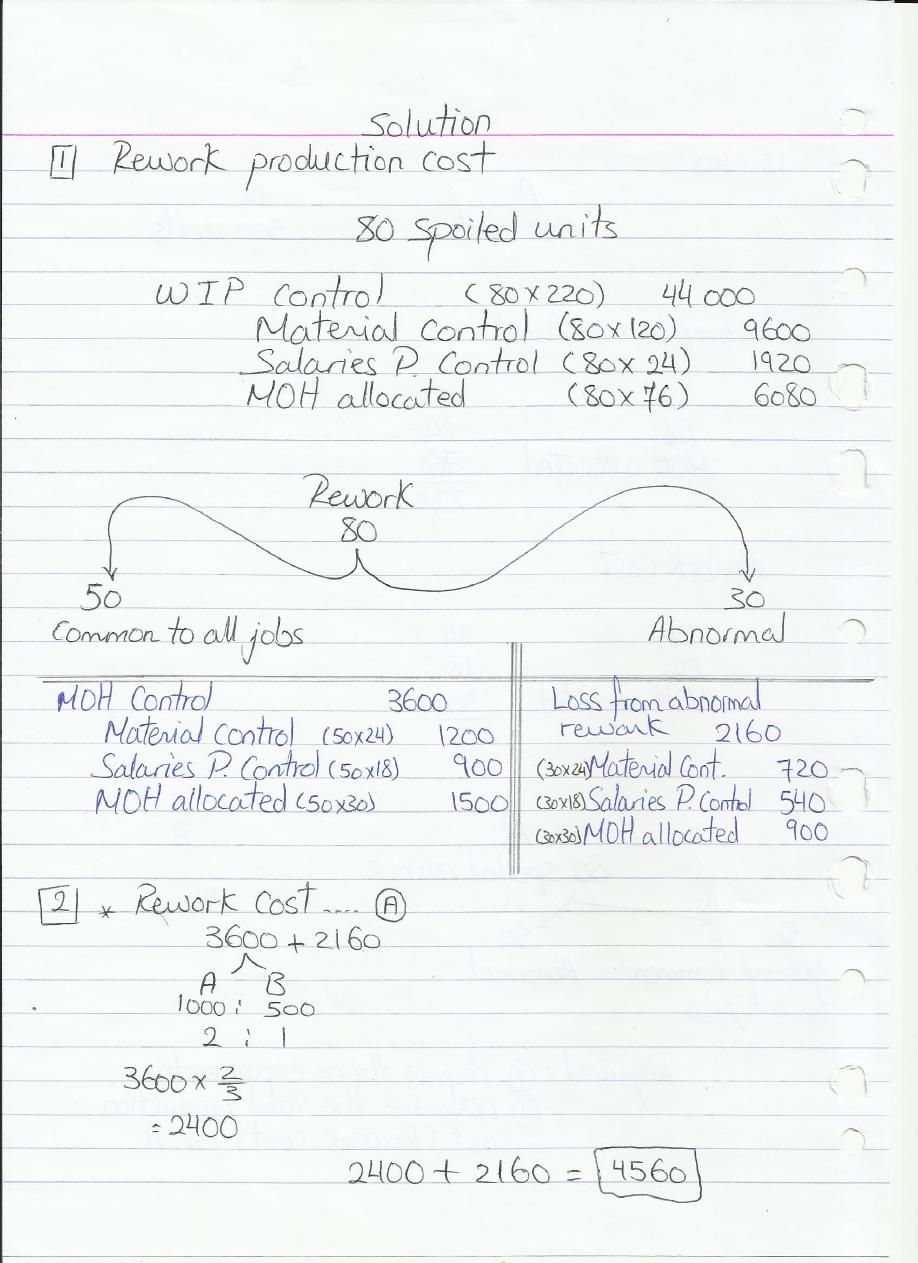 Solution
1 Rework production cost
80 Spoiled units
WIP Control (80 x 220) 44 000
Material Control (80 x 120) 9600
Salaries P. Control (80 x 24) 1920
MOH allocated (80 x 76) 6080
Rework
80
50 30
Common to all jobs Abnormal
MOH Control 3600
Material Control (50x24) 1200
Salaries P. Control (50x18) 900
MOH allocated (50x30) 1500
Loss from abnormal
rework 2160
(30x24) Material Cont. 720
(30x18) Salaries P. Control 540
(30x30) MOH allocated 900
2 * Rework Cost .... A
3600 + 2160
A B
1000 : 500
2 : 1
3600 x 2/3
= 2400
2400 + 2160 = 4560